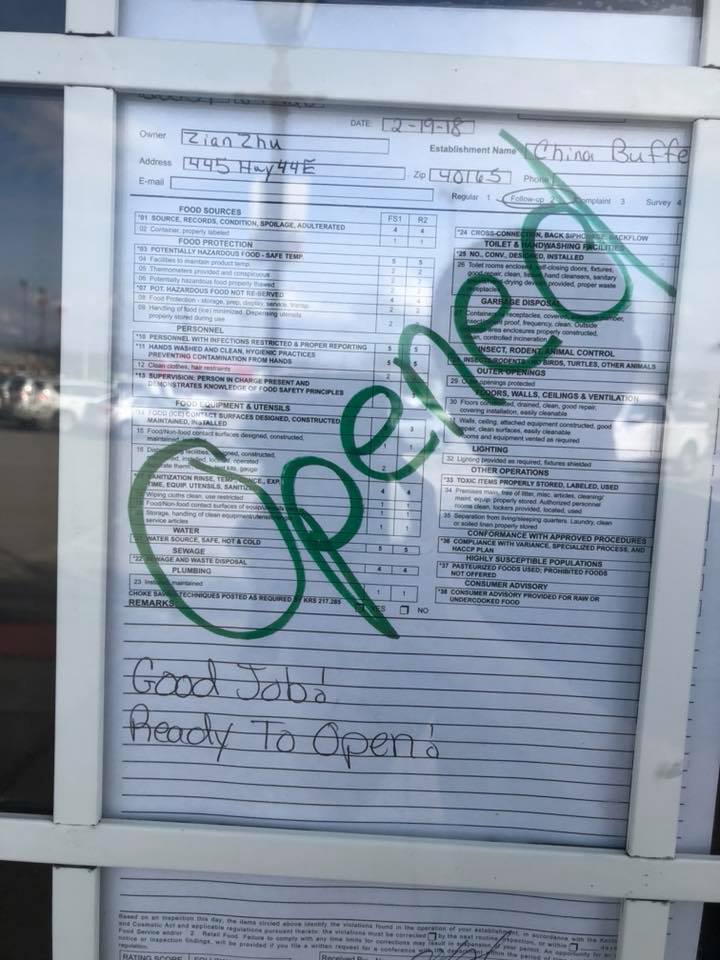 DATE: 2-19-18
Owner Zian Zhu
Establishment Name China Buffe
Address 445 Hwy 44E
Zip 40165 Phone
E-mail
Regular 1 Follow-up 2 Complaint 3 Survey 4
FOOD SOURCES FS1 R2
*01 SOURCE, RECORDS, CONDITION, SPOILAGE, ADULTERATED 4 4
02 Container, properly labeled 1 1
FOOD PROTECTION
*03 POTENTIALLY HAZARDOUS FOOD - SAFE TEMP. 5 5
04 Facilities to maintain product temp.
05 Thermometers provided and conspicuous
06 Potentially hazardous food properly thawed
*07 POT. HAZARDOUS FOOD NOT RE-SERVED
08 Food Protection - storage, prep, display, service, transp.
09 Handling of food (ice) minimized. Dispensing utensils
properly stored during use
PERSONNEL
*10 PERSONNEL WITH INFECTIONS RESTRICTED & PROPER REPORTING 5 5
*11 HANDS WASHED AND CLEAN, HYGIENIC PRACTICES
PREVENTING CONTAMINATION FROM HANDS
12 Clean clothes, hair restraints
*13 SUPERVISION: PERSON IN CHARGE PRESENT AND
DEMONSTRATES KNOWLEDGE OF FOOD SAFETY PRINCIPLES
FOOD EQUIPMENT & UTENSILS
14 FOOD (ICE) CONTACT SURFACES DESIGNED, CONSTRUCTED,
MAINTAINED, INSTALLED
15 Food/Non-food contact surfaces designed, constructed,
SANITIZATION RINSE, TEMP.
TIME, EQUIP. UTENSILS, SANITIZ
Wiping cloths clean, use restricted
Food/Non-food contact surfaces of equip/utensils
Storage, handling of clean equipment/utensils
service articles
WATER
WATER SOURCE, SAFE, HOT & COLD 5 5
SEWAGE
*22 SEWAGE AND WASTE DISPOSAL 4 4
PLUMBING
23 Installed, maintained 1 1
CHOKE SAVING TECHNIQUES POSTED AS REQUIRED BY KRS 217.285 YES NO
REMARKS
*24 CROSS-CONNECTION, BACK SIPHONAGE, BACKFLOW
TOILET & HANDWASHING FACILITIES
*25 NO., CONV., DESIGNED, INSTALLED
26 Toilet rooms enclosed, self-closing doors, fixtures,
good repair, clean, tissue, hand cleansers, sanitary
hand-drying devices provided, proper waste
receptacles
GARBAGE DISPOSAL
27 Containers, receptacles, covered
proof, frequency, clean. Outside
area enclosures properly constructed,
clean, controlled incineration
INSECT, RODENT, ANIMAL CONTROL
28 INSECTS/RODENTS NO BIRDS, TURTLES, OTHER ANIMALS
OUTER OPENINGS
29 Outer openings protected
FLOORS, WALLS, CEILINGS & VENTILATION
30 Floors constructed, drained, clean, good repair,
covering installation, easily cleanable
Walls, ceiling, attached equipment constructed, good
repair, clean surfaces, easily cleanable
Rooms and equipment vented as required
LIGHTING
32 Lighting provided as required, fixtures shielded
OTHER OPERATIONS
*33 TOXIC ITEMS PROPERLY STORED, LABELED, USED
34 Premises main. free of litter, misc. articles, cleaning/
maint. equip. properly stored. Authorized personnel
rooms clean, lockers provided, located, used
35 Separation from living/sleeping quarters. Laundry, clean
or soiled linen properly stored
CONFORMANCE WITH APPROVED PROCEDURES
*36 COMPLIANCE WITH VARIANCE, SPECIALIZED PROCESS, AND
HACCP PLAN
HIGHLY SUSCEPTIBLE POPULATIONS
*37 PASTEURIZED FOODS USED; PROHIBITED FOODS
NOT OFFERED
CONSUMER ADVISORY
*38 CONSUMER ADVISORY PROVIDED FOR RAW OR
UNDERCOOKED FOOD
Opened
Good Job!
Ready To Open!
Based on an inspection this day, the items circled above identify the violations found in the operation of your establishment, in accordance with the
and Cosmetic Act and applicable regulations pursuant thereto; the violations must be corrected by the next routine inspection, or within days
Food Service and/or 2. Retail Food. Failure to comply with any time limits for corrections may result in suspension of your permit. An opportunity for
notice or inspection findings, will be provided if you file a written request for a conference with the department within the period of time
regulation.
RATING SCORE Received By